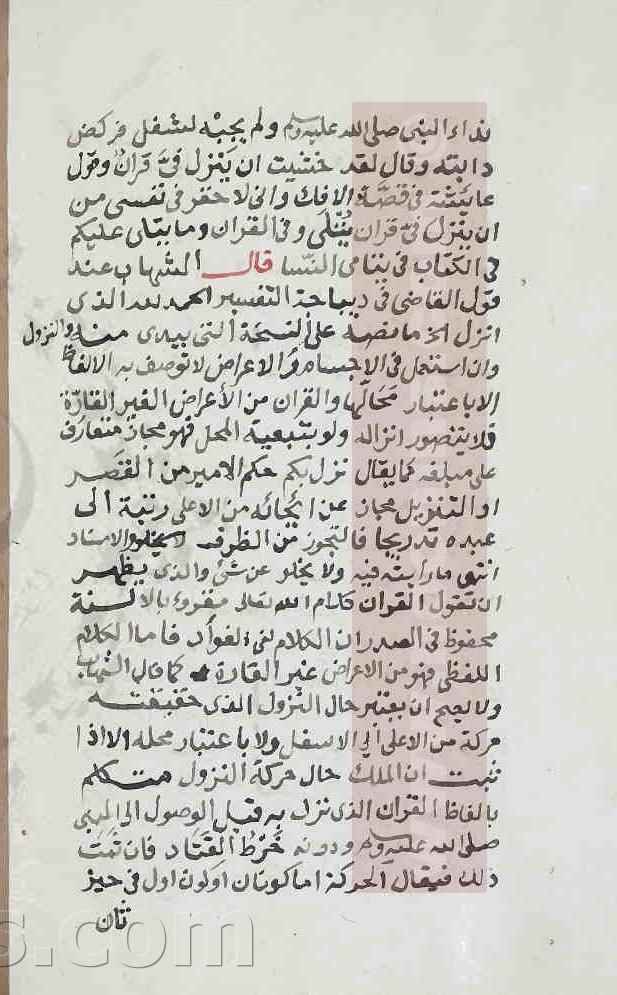 نداء النبى صلى الله عليه وسلم ولم يجبه لشغل فركض
دابته وقال لقد خشيت ان ينزل فىّ قرآن وقول
عايشة فى قصة الافك وانى لاحقر فى نفسى من
ان ينزل فىّ قران يُتلى وفى القران وما يتلى عليكم
فى الكتاب فى يتامى النسا قال الشهاب عند
قول القاضى فى ديباجة التفسير الحمد لله الذى
انزل الخ ما نصه على النسخة التى بيدى منه والنزول
وان استعمل فى الاجسام والاعراض لا توصف به الالفاظ
الا باعتبار مَحَالّها والقران من الأعراض الغير القارّة
فلا يتصور انزاله ولو بتبعية المحل فهو مجاز متعارف
على مبلغه كما يقال نزل بكم حكم الامير من القصر
او التنزيل مجاز عن ايحائه من الاعلى رتبة الى
عبده تدريجا فالتجوز من الظرف والاسناد
انتهى ما رايته فيه ولا يخلو عن شئ والذى يظهر
ان تقول القران كلام الله تعالى مقروء بالالسنة
محفوظ فى الصدر ان الكلام لفى الفواد فاما الكلام
اللفظى فهو من الاعراض غير القارة كما قال الشهاب
ولا يصح ان يعتبر حال النزول الذى حقيقته
حركة من الاعلى الى الاسفل ولا باعتبار محله الا اذا
ثبت ان الملك حال حركة النزول متكلم
بالفاظ القران الذى نزل به قبل الوصول الى النبى
صلى الله عليه وسلم ودونه خَرْطُ القَتَاد فان ثمت
ذلك فيقال الحركة اما كونان او كون اول فى حيز
ثان
s.com